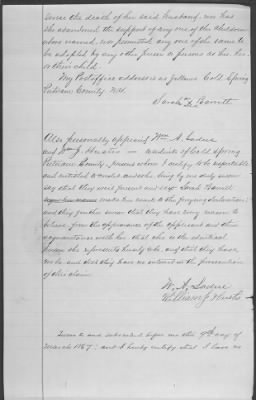 since the death of her said husband, nor has
she abandoned the support of any one of the children
above named, nor permitted any one of the same to
be adopted by any other person or persons as his, her
or their child.
My Postoffice address is as follows Cold Spring
Putnam County N.Y.
Sarah Barrett
Also personally appeared Wm A. Ladue
and Wm J. residents of Cold Spring
Putnam County, persons whom I certify to be respectable
and entitled to credit and who being by me duly sworn
say that they were present and saw Sarah Barrett
make her mark to the foregoing declaration;
and they further swear that they have every reason to
believe from the appearance of the applicant and their
acquaintance with her that she is the identical
person she represents herself to be, and that they have
no interest in the prosecution
of this claim
W. A. Ladue
William J.
Sworn to and subscribed before me this 9th day of
March 1867; and I hereby certify that I have no